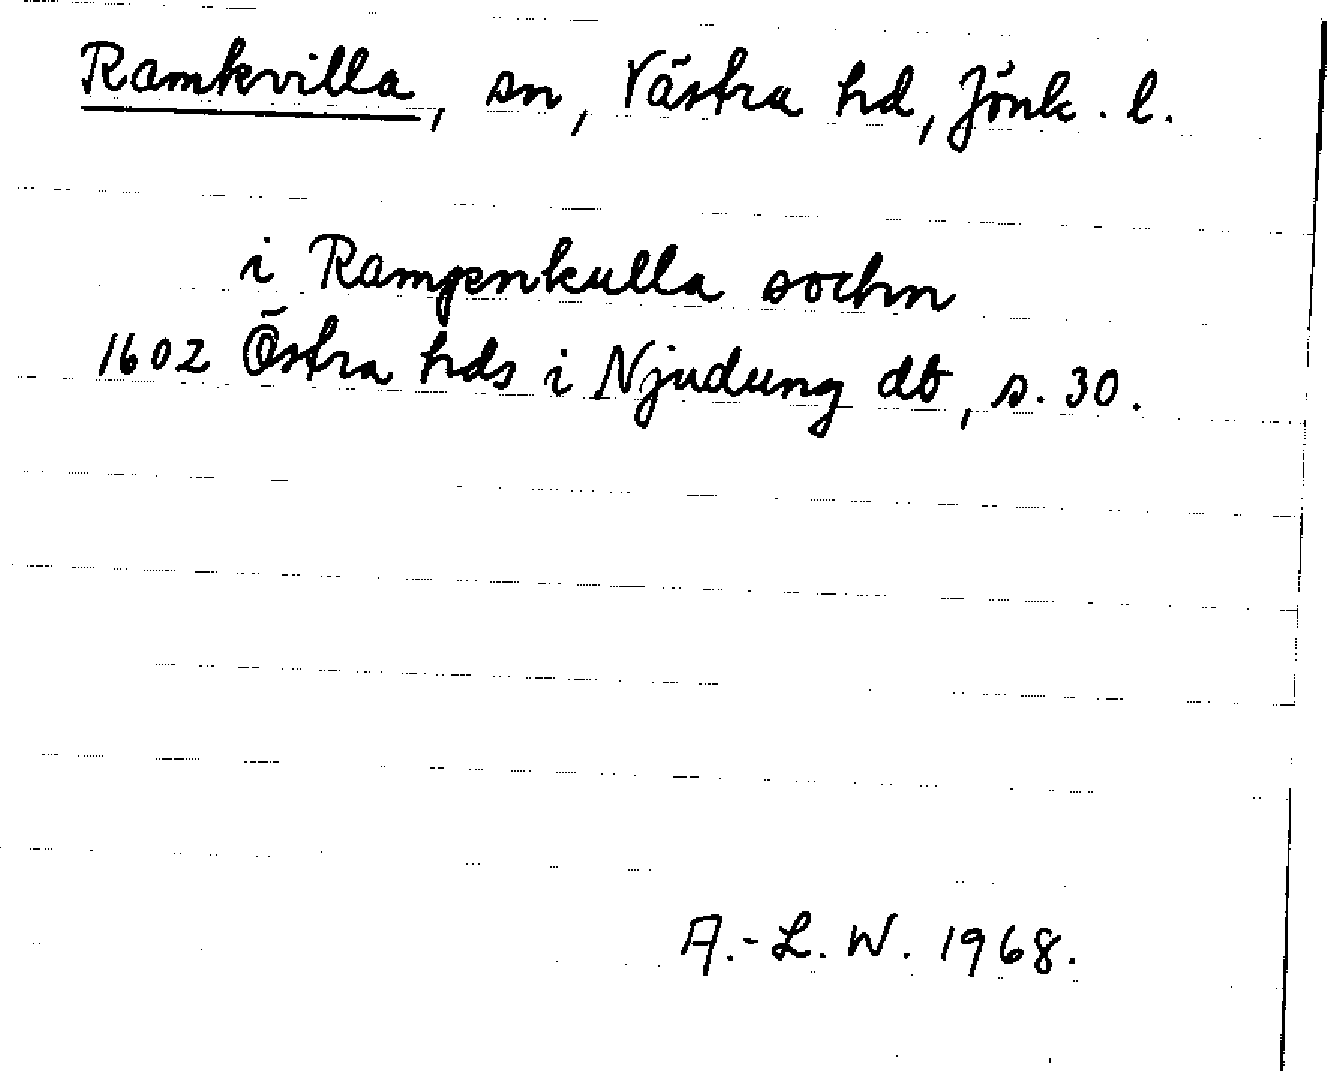 Ramkvilla, sn, Västra hd, Jönk. l.
i Ramgenkulla sochn
1602 Östra hds i Njudung db, s. 30.
A.-L. W. 1968.